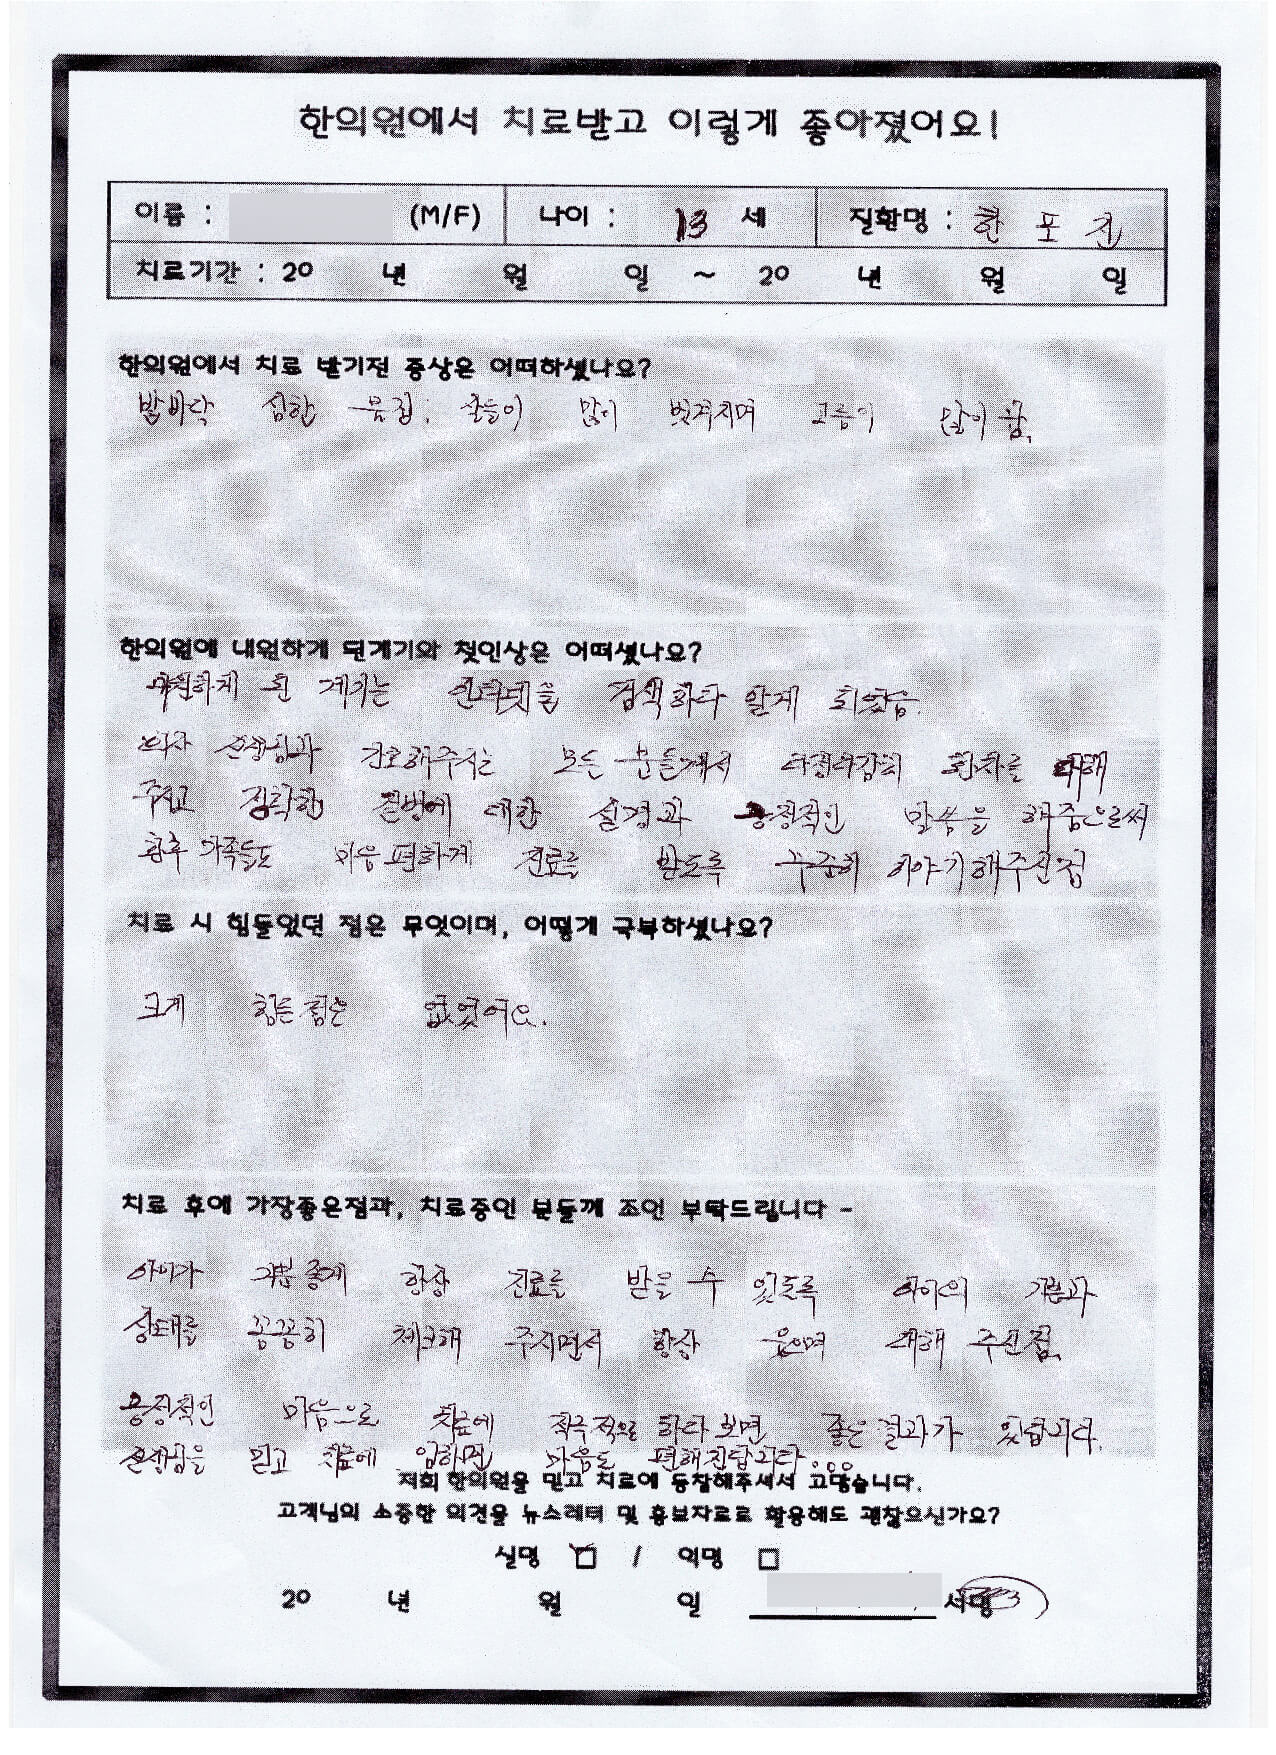 한의원에서 치료받고 이렇게 좋아졌어요!
이름 : (M/F) 나이 : 13 세 질환명 : 한 포 진
치료기간 : 20 년 월 일 ~ 20 년 월 일
한의원에서 치료 받기전 증상은 어떠하셨나요?
발바닥 심한 물집, 살들이 많이 벗겨지며 고름이 많이 참.
한의원에 내원하게 된계기와 첫인상은 어떠셨나요?
내원하게 된 계기는 인터넷을 검색하다 알게 되었음.
의사 선생님과 간호해주시는 모든 분들께서 다정다감히 환자를 대해
주시고 정확한 질병에 대한 설명과 긍정적인 말씀을 해줌으로써
향후 가족들도 마음 편하게 진료를 받도록 꾸준히 이야기해주신점
치료 시 힘들었던 점은 무엇이며, 어떻게 극복하셨나요?
크게 힘든 점은 없었어요.
치료 후에 가장좋은점과, 치료중인 분들께 조언 부탁드립니다 -
아이가 기분 좋게 항상 진료를 받을 수 있도록 아이의 기분과
상태를 꼼꼼히 체크해 주시면서 항상 웃으며 대해 주신점.
긍정적인 마음으로 치료에 적극적으로 하다보면 좋은 결과가 있답니다.
선생님을 믿고 치료에 임하면 마음도 편해진답니다...
저희 한의원을 믿고 치료에 동참해주셔서 고맙습니다.
고객님의 소중한 의견을 뉴스레터 및 홍보자료로 활용해도 괜찮으신가요?
실명 / 익명
20 년 월 일 서명